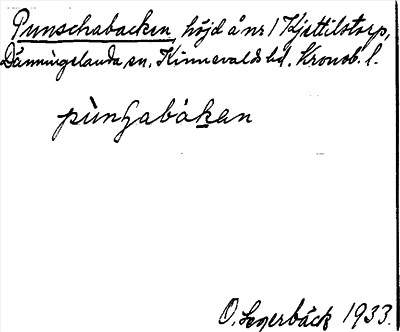 Punschabacken, höjd å nr 1 Kjettilstorp,
Dänningelanda sn. Kinnevalds hd. Kronob. l.
pùnʃabákan
O. Segerbäck 1933.